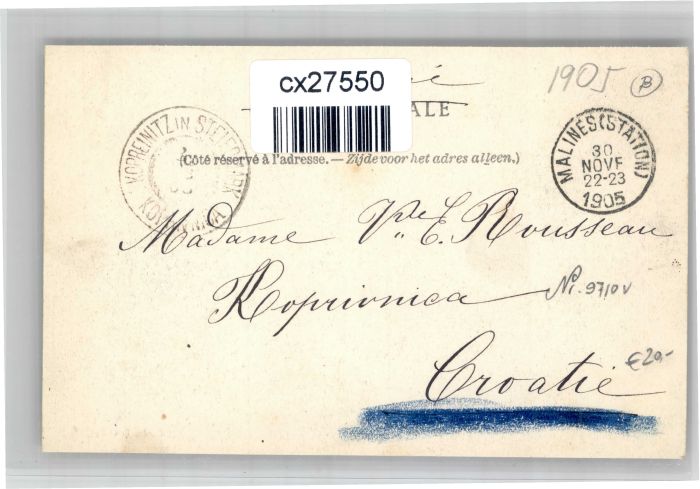 cx27550
1905 B
ALE
(Côté réservé à l'adresse. — Zijde voor het adres alleen.)
MALINES (STATION)
30
NOVE
22-23
1905
KOPREINITZ IN STEIERMARK
Madame Vve E. Rousseau
Koprivnica
Nr. 9710 v
Croatie
€20,-